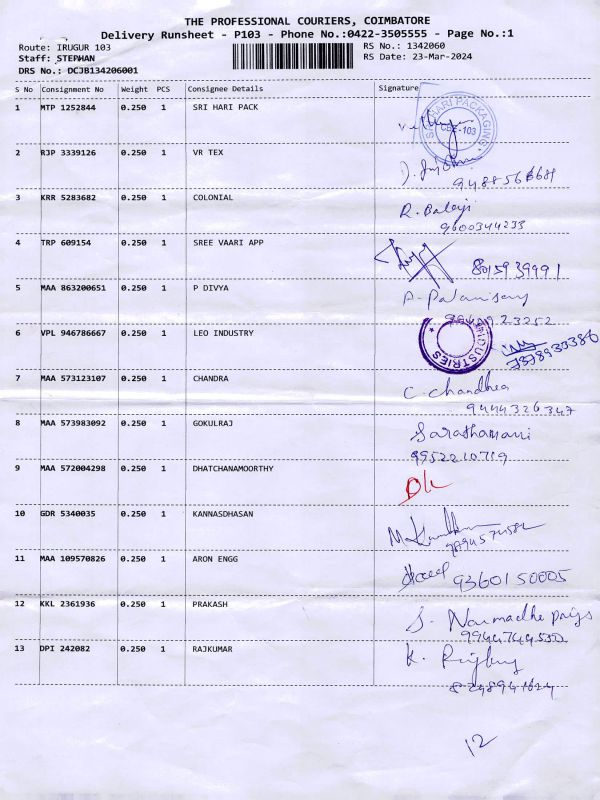 THE PROFESSIONAL COURIERS, COIMBATORE
Delivery Runsheet - P103 - Phone No.:0422-3505555 - Page No.:1
Route: IRUGUR 103 RS No.: 1342060
Staff: STEPHAN RS Date: 23-Mar-2024
DRS No.: DCJB134206001
S No Consignment No Weight PCS Consignee Details Signature
1 MTP 1252844 0.250 1 SRI HARI PACK
SRI HARI PACKAGING CBE-103
2 RJP 3339126 0.250 1 VR TEX
3 KRR 5283682 0.250 1 COLONIAL R. Balaji
9600344233
4 TRP 609154 0.250 1 SREE VAARI APP
8015939991
5 MAA 863200651 0.250 1 P DIVYA
6 VPL 946786667 0.250 1 LEO INDUSTRY
INDUSTRIES
7 MAA 573123107 0.250 1 CHANDRA C. Chandhea
9444326347
8 MAA 573983092 0.250 1 GOKULRAJ Sarathamani
9952210719
9 MAA 572004298 0.250 1 DHATCHANAMOORTHY
10 GDR 5340035 0.250 1 KANNASDHASAN
11 MAA 109570826 0.250 1 ARON ENGG
9360150005
12 KKL 2361936 0.250 1 PRAKASH
13 DPI 242082 0.250 1 RAJKUMAR
12